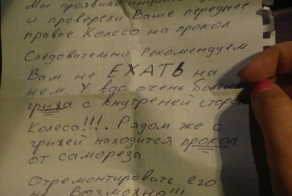 Мы
и проверели Ваше переднее
правое колесо на прокол.
Следовательно Рекомендуем
Вам не ЕХАТЬ на
нем У вас очень
грыжа с внутреней
колеса!!!. Рядом же с
грыжей находится прокол
от самореза.
Отремонтировать его
не Возможно!!!